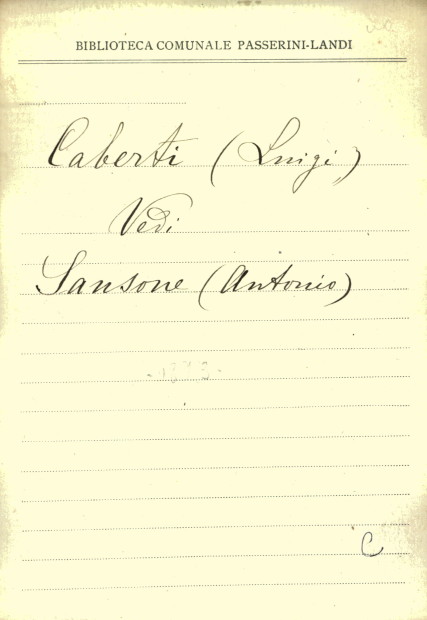 BIBLIOTECA COMUNALE PASSERINI-LANDI
Caberti (Luigi)
Vedi
Sansone (Antonio)
C